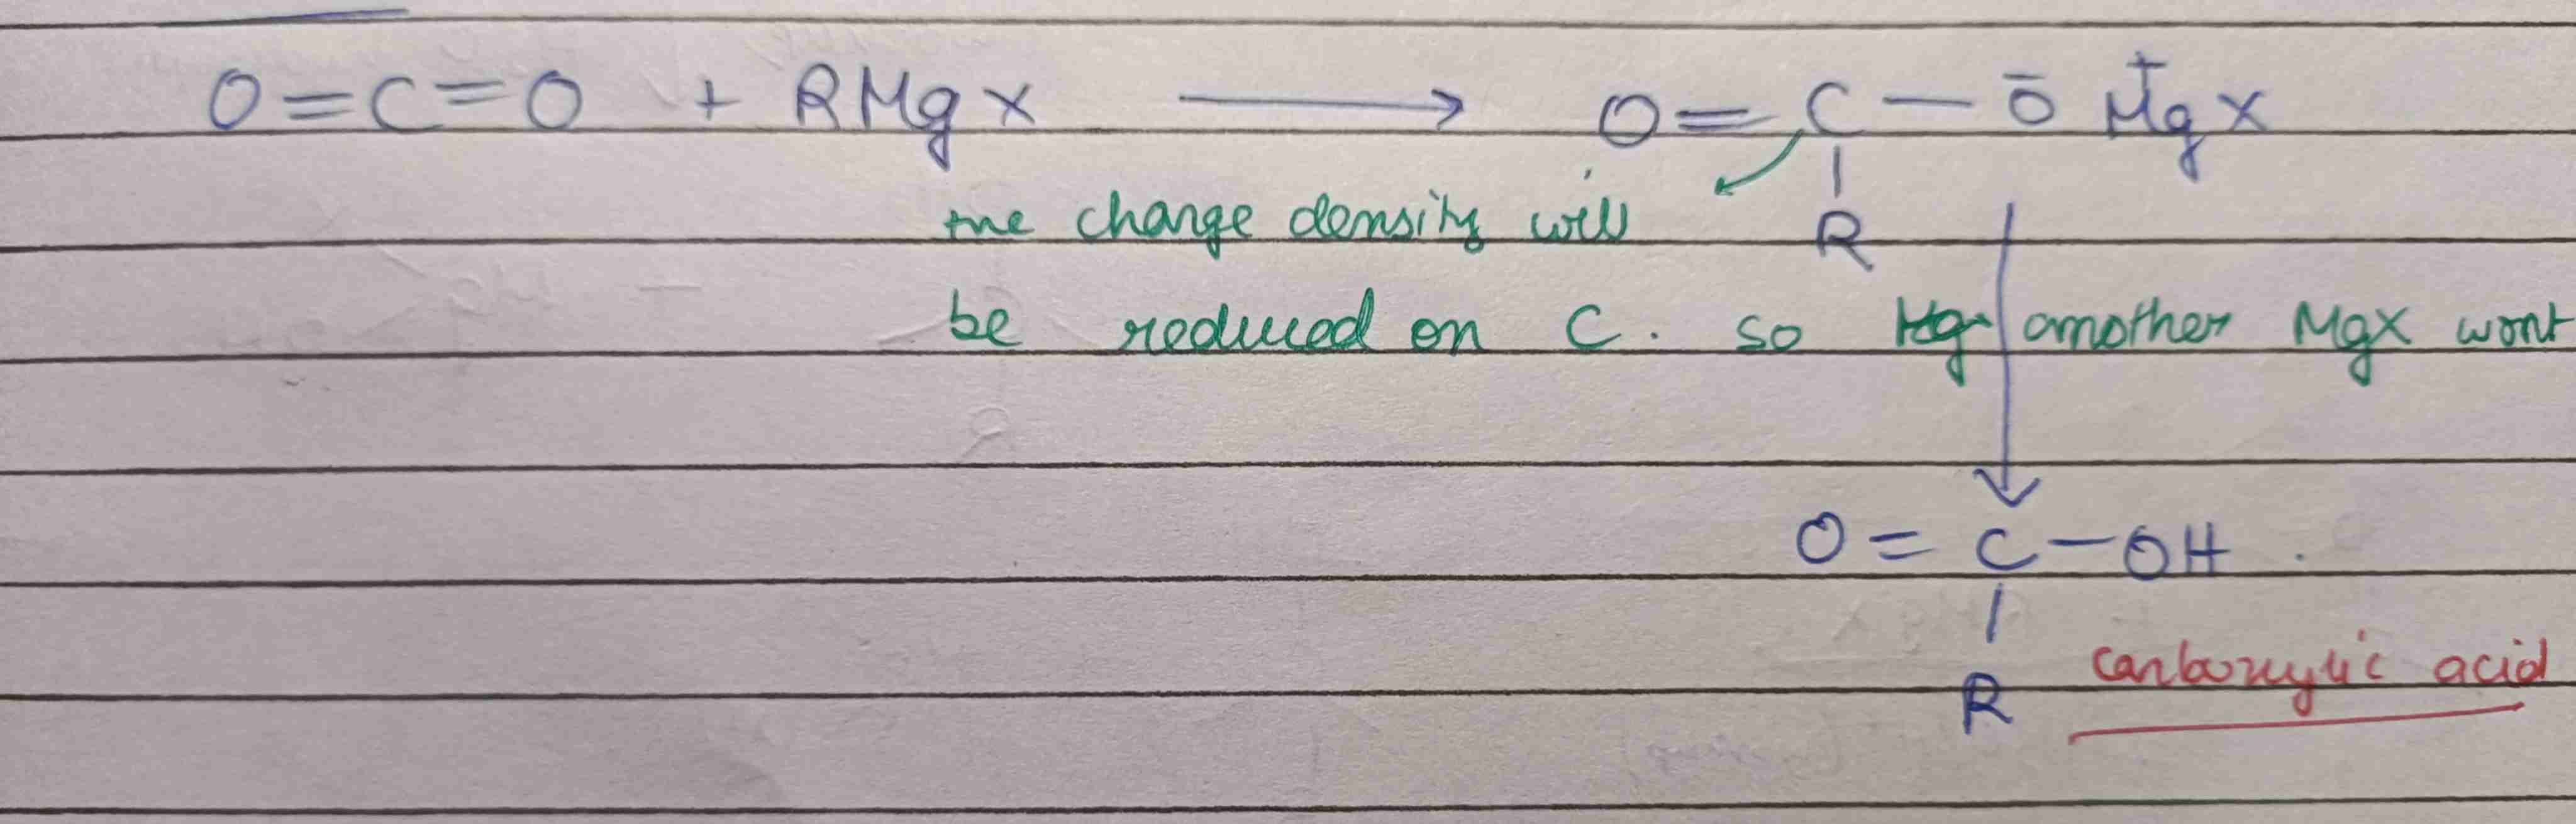 O=C=O + RMgx ⟶ O=C-Ō M⁺gx
|
the charge density will R
be reduced on C. so another MgX wont
O=C-OH.
|
R carboxylic acid